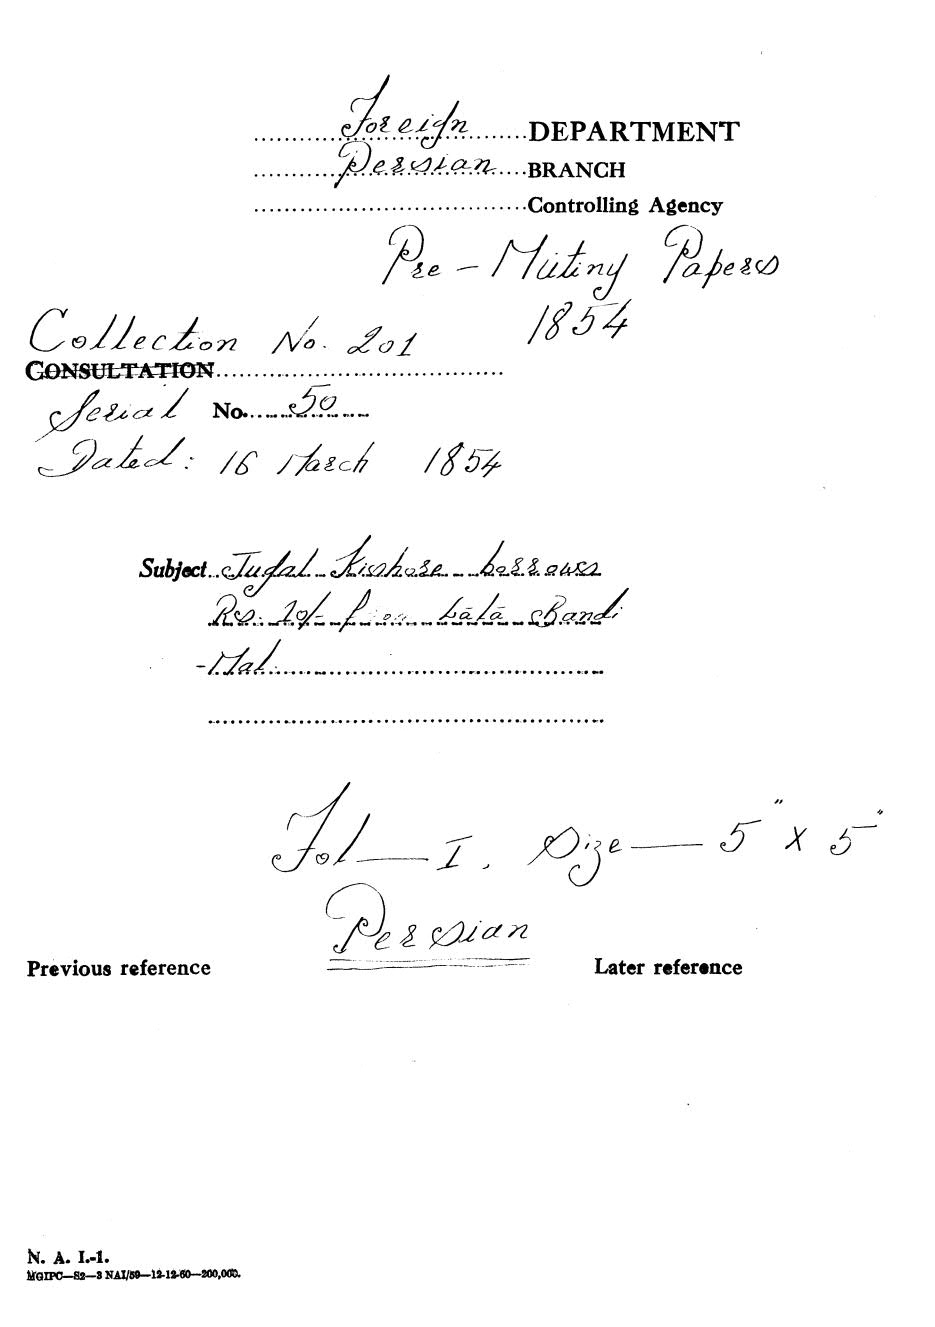 Foreign DEPARTMENT
Persian BRANCH
Controlling Agency
Pre-Mutiny Papers
1854
Collection No. 201
CONSULTATION
Serial No. 50
Dated: 16 March 1854
Subject Jugal Kishore borrows
Rs. 10/- from Lālā Bandi
-Mal.
Fol — I. Size — 5" X 5"
Persian
Previous reference Later reference
N. A. I.-1.
MGIPC—S2—3 NAI/59—12-12-60—200,000.